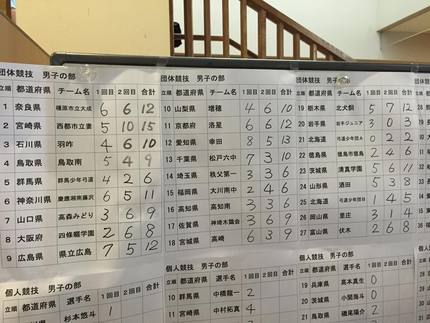 団体競技　男子の部
立順 都道府県 チーム名 1回目 2回目 合計
1 奈良県 橿原市立大成 6 6 12
2 宮崎県 西都市立妻 5 10 15
3 石川県 羽咋 4 6 10
4 鳥取県 鳥取南 5 4 9
5 群馬県 群馬少年弓道 4 2 6
6 神奈川県 慶應湘南藤沢 6 5 11
7 山口県 高森みどり 3 6 9
8 大阪府 四條畷学園 2 6 8
9 広島県 県立広島 7 5 12
個人競技　男子の部
立順 都道府県 選手名 1回目
杉本悠斗 1
団体競技　男子の部
立順 都道府県 チーム名 1回目 2回目 合計
10 山梨県 増穂 4 6 10
11 京都府 洛星 6 6 12
12 愛知県 幸田 8 5 13
13 千葉県 松戸六中 7 3 10
14 埼玉県 秩父第一 3 3 6
15 福岡県 大川南中 2 4 6
16 高知県 高知南 3 3 6
17 佐賀県 神埼木鶏会 3 6 9
18 宮崎県 高崎 6 3 9
個人競技　男子の部
立順 都道府県 選手名 1回目 2回目 合計
10 群馬県 中橋龍一 2
11 宮崎県 中村拓真 4
団体競技　男子の部
立順 都道府県 チーム名 1回目 2回目 合計
19 栃木県 北犬飼 5 7 12
20 岩手県 岩手ジュニア 3 0 3
21 北海道 0 2 2
22 徳島県 2 4 6
23 茨城県 清真学園 5 6 11
24 山形県 酒田 5 3 8
25 北海道 1 4 5
26 岡山県 里庄 3 1 4
27 富山県 伏木 2 6 8
個人競技　男子の部
立順 都道府県 選手名 1回目 2回目 合計
19 兵庫県 高本真生 0
20 茨城県 小間隼斗 0
21 鳥取県 磯尾陽介 2